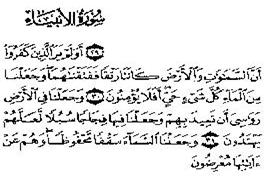 سُورَةُ الأَنْبِيَاءِ
٢٩ أَوَلَمْ يَرَ ٱلَّذِينَ كَفَرُوٓا۟
أَنَّ ٱلسَّمَـٰوَٰتِ وَٱلْأَرْضَ كَانَتَا رَتْقًا فَفَتَقْنَـٰهُمَا وَجَعَلْنَا
مِنَ ٱلْمَآءِ كُلَّ شَىْءٍ حَىٍّ أَفَلَا يُؤْمِنُونَ ٣٠ وَجَعَلْنَا فِى ٱلْأَرْضِ
رَوَٰسِىَ أَن تَمِيدَ بِهِمْ وَجَعَلْنَا فِيهَا فِجَاجًا سُبُلًا لَّعَلَّهُمْ
يَهْتَدُونَ ٣١ وَجَعَلْنَا ٱلسَّمَآءَ سَقْفًا مَّحْفُوظًا وَهُمْ عَنْ
ءَايَـٰتِهَا مُعْرِضُونَ